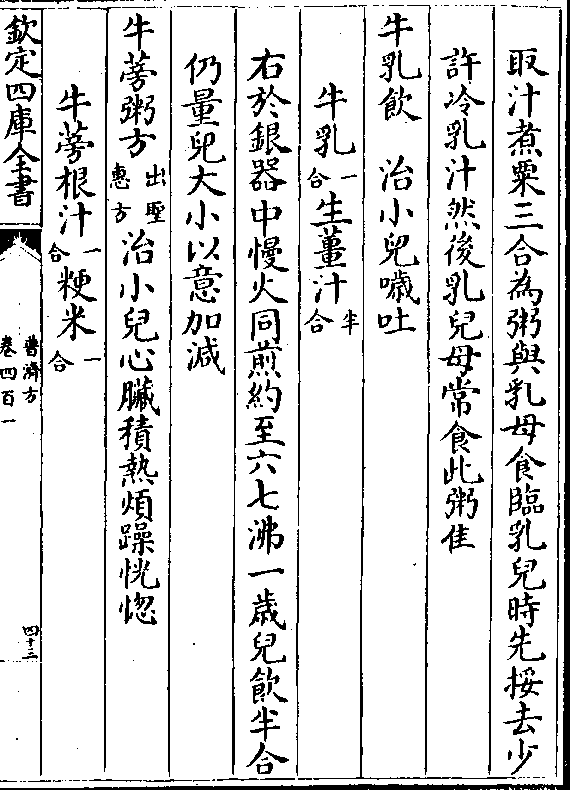 取汁煮粟三合為粥與乳母食臨乳兒時先挼去少
許冷乳汁然後乳兒母常食此粥佳
牛乳飲　治小兒噦吐
牛乳一合生薑汁半合
右於銀器中慢火同煎約至六七沸一歲兒飲半合
仍量兒大小以意加減
牛蒡粥方出聖惠方治小兒心臟積熱煩躁恍惚
牛蒡根汁一合粳米一合
欽定四庫全書
普濟方
卷四百一
四十三